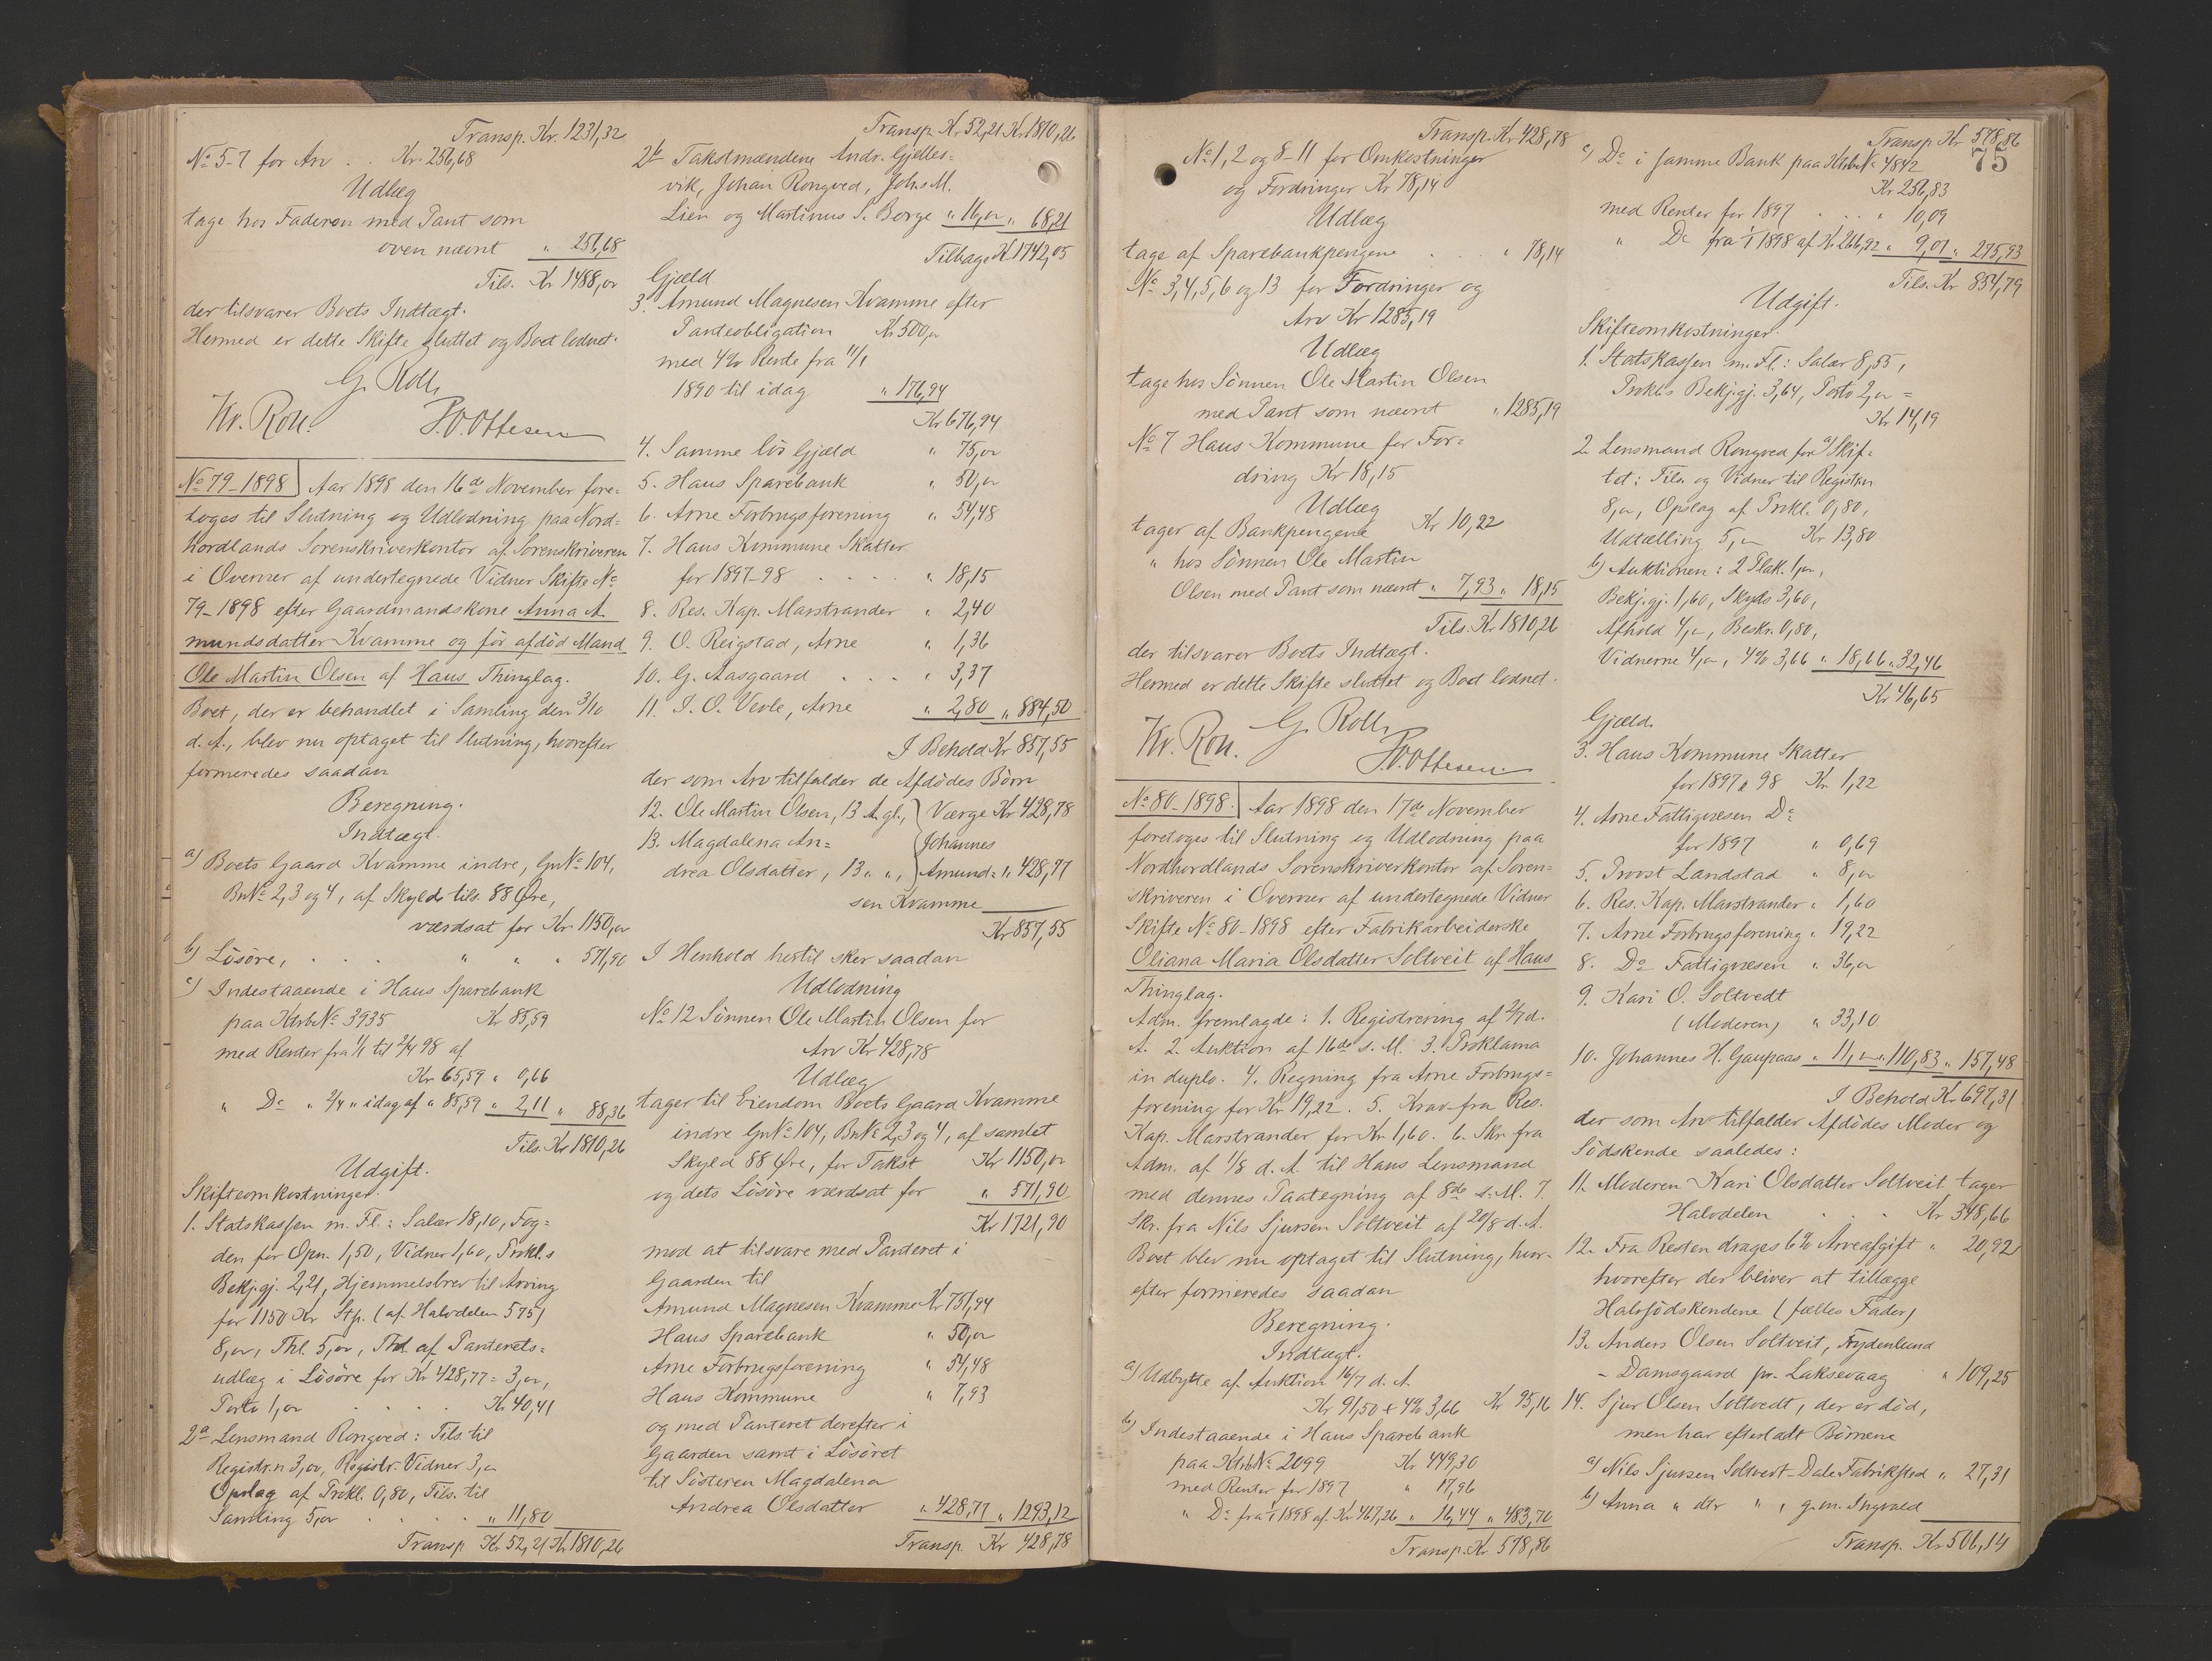 Transp. Kr. 1231,32
No 5-7 for Arv . . Kr. 256,68
Udlæg
tage hos Faderen med Pant som
oven nævnt " 256,68
Tils. Kr 1488,00
der tilsvarer Boets Indtægt.
Hermed er dette Skifte sluttet og Boet lodnet.
G. Roll
Kr. Roll. P.O. Ottesen
No 79-1898 Aar 1898 den 16de November fore-
toges til Slutning og Udlodning paa Nord-
hordlands Sorenskriverkontor af Sorenskriveren
i Overvær af undertegnede Vidner Skifte No
79-1898 efter Gaardmandskone Anna A
mundsdatter Kvamme og før afdød Mand
Ole Martin Olsen af Haus Thinglag.
Boet, der er behandlet i Samling den 3/10
d. A., blev nu optaget til Slutning, hvorefter
formeredes saadan
Beregning.
Indtægt.
a) Boets Gaard Kvamme indre, Gn No 104,
Bn No 2, 3 og 4, af Skyld tils. 88 Øre,
værdsat for Kr. 1150,00
b) Løsøre, . . . " " " 571,90
c) Indestaaende i Haus Sparebank
paa Ktrb No 3935 Kr 85,59
med Renter fra 1/1 til 2/4 98 af
Kr 65,59 " 0,66
" Do " 2/4 " idag af " 85,59 " 2,11 " 88,36
Tils. Kr 1810,26
Udgift.
Skifteomkostninger.
1. Statskassen m. Fl.: Salær 18,10, Fog-
den for Opn. 1,50, Vidner 1,60, Prokl.s
Bekj.gj. 2,21, Hjemmelsbrev til Arving
for 1150 Kr Stp. (af Halvdelen 575)
8,00, Thl. 5,00, Thl. af Panterets-
udlæg i Løsøre for Kr 428,77 = 3,00,
Porto 1,00 . . . . Kr 40,41
2a Lensmand Rongved: Tils. til
Registr.n 3,00, Registr. Vidner 3,00
Opslag af Prokl. 0,80, Tils. til
Samling 5,00 . . . . " 11,80
Transp. Kr 52,21 Kr 1810,26
Transp. Kr 52,21 Kr 1810,26
2b Takstmændene Andr. Gjelles-
vik, Johan Rongved, Johs M.
Lien og Martinus S. Borge " 16,00 " 68,21
Tilbage Kr 1742,05
Gjæld.
3. Amund Magnesen Kvamme efter
Panteobligation Kr 500,00
med 4% Rente fra 11/1
1890 til idag " 176,94
Kr 676,94
4. Samme løs Gjæld " 75,00
5. Haus Sparebank " 50,00
6. Arne Forbrugsforening " 54,48
7. Haus Kommune Skatter
for 1897-98 . . . . " 18,15
8. Res. Kap. Marstrander " 2,40
9. O. Reigstad, Arne " 1,36
10. G. Aasgaard . . . " 3,37
11. I. O. Veole, Arne " 2,80 " 884,50
I Behold Kr 857,55
der som Arv tilfalder de Afdødes Børn
12. Ole Martin Olsen, 13 A. gl., Værge Kr 428,78
13. Magdalena An- Johannes
drea Olsdatter, 13 " ", Amund- " 428,77
sen Kvamme
Kr 857,55
I Henhold hertil sker saadan
Udlodning
No 12 Sønnen Ole Martin Olsen for
Arv Kr 428,78
Udlæg
tager til Eiendom Boets Gaard Kvamme
indre Gn No 104, Bn No 2, 3 og 4, af samlet
Skyld 88 Øre, for Takst Kr 1150,00
og dets Løsøre værdsat for " 571,90
Kr 1721,90
mod at tilsvare med Panteret i
Gaarden til
Amund Magnesen Kvamme Kr 751,94
Haus Sparebank " 50,00
Arne Forbrugsforening " 54,48
Haus Kommune " 7,93
og med Panteret derefter i
Gaarden samt i Løsøret
til Søsteren Magdalena
Andrea Olsdatter " 428,77 " 1293,12
Transp. Kr 428,78
Transp. Kr 428,78
No 1, 2 og 8-11 for Omkostninger
og Fordringer Kr 78,14
Udlæg
tage af Sparebankpengene . . " 78,14
No 3, 4, 5, 6 og 13 for Fordringer og
Arv Kr 1285,19
Udlæg
tage hos Sønnen Ole Martin Olsen
med Pant som nævnt " 1285,19
No 7 Haus Kommune for For-
dring Kr 18,15
Udlæg
tager af Bankpengene Kr 10,22
" hos Sønnen Ole Martin
Olsen med Pant som nævnt " 7,93 " 18,15
Tils. Kr 1810,26
der tilsvarer Boets Indtægt.
Hermed er dette Skifte sluttet og Boet lodnet.
Kr. Roll. G. Roll
P.O. Ottesen
No 80-1898. Aar 1898 den 17de November
foretoges til Slutning og Udlodning paa
Nordhordlands Sorenskriverkontor af Soren-
skriveren i Overvær af undertegnede Vidner
Skifte No 80-1898 efter Fabrikarbeiderske
Oliana Maria Olsdatter Soltveit af Haus
Thinglag.
Adm. fremlagde: 1. Registrering af 2/7 d.
A. 2. Auktion af 16de s. M. 3. Proklama
in duplo. 4. Regning fra Arne Forbrugs-
forening for Kr 19,22. 5. Krav fra Res.
Kap. Marstrander for Kr 1,60. 6. Skr. fra
Adm. af 1/8 d. A. til Haus Lensmand
med dennes Paategning af 8de s. M. 7.
Skr. fra Nils Sjursen Soltveit af 20/8 d. A.
Boet blev nu optaget til Slutning, hvor-
efter formeredes saadan
Beregning.
Indtægt.
a) Udbytte af Auktion 16/7 d. A.
Kr 91,50 + 4% 3,66 Kr 95,16
b) Indestaaende i Haus Sparebank
paa Ktrb No 2099 Kr 449,30
med Renter for 1897 " 17,96
" Do fra 1/1 1898 af Kr 467,26 " 16,44 " 483,70
Transp. Kr 578,86
Transp. Kr 578,86
75
c) Do i samme Bank paa Ktrb No 4842
Kr 256,83
med Renter for 1897 . . . " 10,09
" Do fra 1/1 1898 af Kr 266,92 " 9,01 " 275,93
Tils. Kr 854,79
Udgift.
Skifteomkostninger.
1. Statskassen m. Fl.: Salær 8,55,
Prokl.s Bekj.gj. 3,64, Porto 2,00 =
Kr 14,19
2. Lensmand Rongved for a) Skif-
tet: Tils. og Vidner til Registr.n
8,00, Opslag af Prokl. 0,80,
Udtælling 5,00 Kr 13,80
b) Auktionen: 2 Plak. 1,00,
Bekj.gj. 1,60, Skyds 3,60,
Afhold 4,00, Beskr. 0,80,
Vidnerne 4,00, 4% 3,66 " 18,66 " 32,46
Kr 46,65
Gjæld.
3. Haus Kommune Skatter
for 1897 & 98 Kr 1,22
4. Arne Fattigvæsen Do
for 1897 " 0,69
5. Provst Landstad " 8,00
6. Res. Kap. Marstrander " 1,60
7. Arne Forbrugsforening " 19,22
8. Do Fattigvæsen " 36,00
9. Kari O. Soltvedt
(Moderen) " 33,10
10. Johannes H. Gaupaas " 11,00 " 110,83 " 157,48
I Behold Kr 697,31
der som Arv tilfalder Afdødes Moder og
Sødskende saaledes:
11. Moderen Kari Olsdatter Soltveit tager
Halvdelen . . . Kr 348,66
12. Fra Resten drages 6% Arveafgift " 20,92
hvorefter der bliver at tillægge
Halvsødskendene (fælles Fader)
13. Anders Olsen Soltveit, Frydenlund
- Damsgaard pr. Laksevaag " 109,25
14. Sjur Olsen Soltvedt, der er død,
men har efterladt Børnene
a) Nils Sjursen Soltvedt - Dale Fabriksted " 27,31
b) Anna " dtr " " g. m. Ingvald
Transp. Kr 506,14